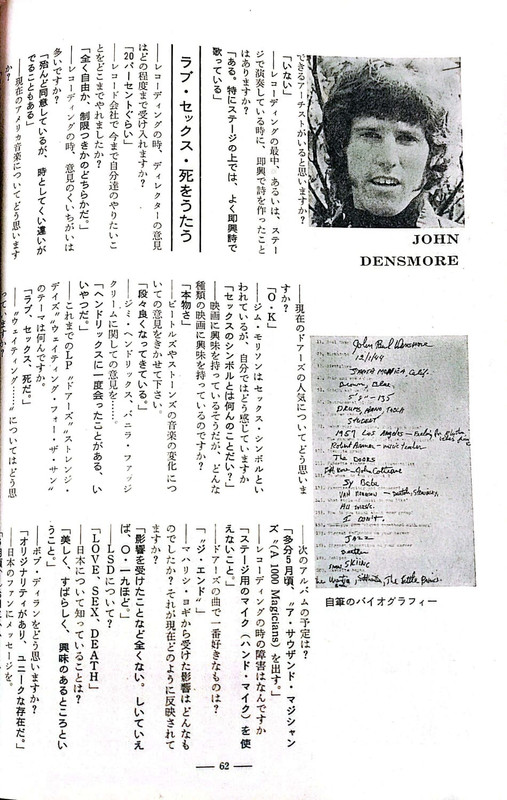 できるアーチストがいると思いますか?
「いない」
――レコーディングの最中、あるいは、ステー
ジで演奏している時に、即興で詩を作ったこと
はありますか?
「ある。特にステージの上では、よく即興詩で
歌っている」
ラブ・セックス・死をうたう
――レコーディングの時、ディレクターの意見
はどの程度まで受け入れますか?
「20パーセントぐらい」
――レコード会社で今まで自分達のやりたいこ
とをどこまでやれましたか?
「全く自由か、制限つきかのどちらかだ。」
――レコーディングの時、意見のくいちがいは
多いですか?
「殆んど同意しているが、時としてくい違いが
でることもある」
――現在のアメリカ音楽についてどう思います
か?
JOHN
DENSMORE
――現在のドアーズの人気についてどう思いま
すか?
「O・K」
――ジム・モリソンはセックス・シンボルとい
われているが、自分ではどう感じていますか
「セックスのシンボルとは何んのことだい?」
――映画に興味を持っているそうだが、どんな
種類の映画に興味を持っているのですか?
「本物さ」
――ビートルズやストーンズの音楽の変化につ
いての意見をきかせて下さい。
「段々良くなってきている。」
――ジミ・ヘンドリックス、バニラ・ファッジ
クリームに関しての意見を……。
「ヘンドリックスに一度会ったことがある、い
いやつだ。」
――これまでのLP〝ドアーズ〟〝ストレンジ・
デイズ〟〝ウェイティング・フォー・ザ・サン〟
のテーマは何んですか。
「ラブ、セックス、死だ。」
――〝ウェイティング……〟についてはどう思
っていますか?
John Paul Densmore
12/1/44
SANTA MONICA, Calif.
Brown, Blue
5'8"-135
DRUMS, PIANO,
STUDENT
1957 Los Angeles
THE DOORS
John Coltrane
All music.
I don't.
JAZZ
SKIING
The Beatles
自筆のバイオグラフィー
――次のアルバムの予定は?
「多分5月頃、〝ア・サウザンド・マジシャン
ズ〟(A 1000 Magicians)を出す。」
――レコーディングの時の障害はなんですか
「ステージ用のマイク(ハンド・マイク)を使
えないこと。」
――ドアーズの曲で一番好きなものは?
「〝ジ・エンド〟」
――マハリシ・ヨギから受けた影響はどんなも
のでしたか?それが現在どのように反映されて
ますか?
「影響を受けたことなど全くない。しいていえ
ば、〇・一九ほど。」
――LSDについて?
「LOVE, SEX, DEATH」
――日本について知っていることは?
「美しく、すばらしく、興味のあるところとい
うこと。」
――ボブ・ディランをどう思いますか?
「オリジナリティがあり、ユニークな存在だ。」
――日本のファンにメッセージを。
― 62 ―